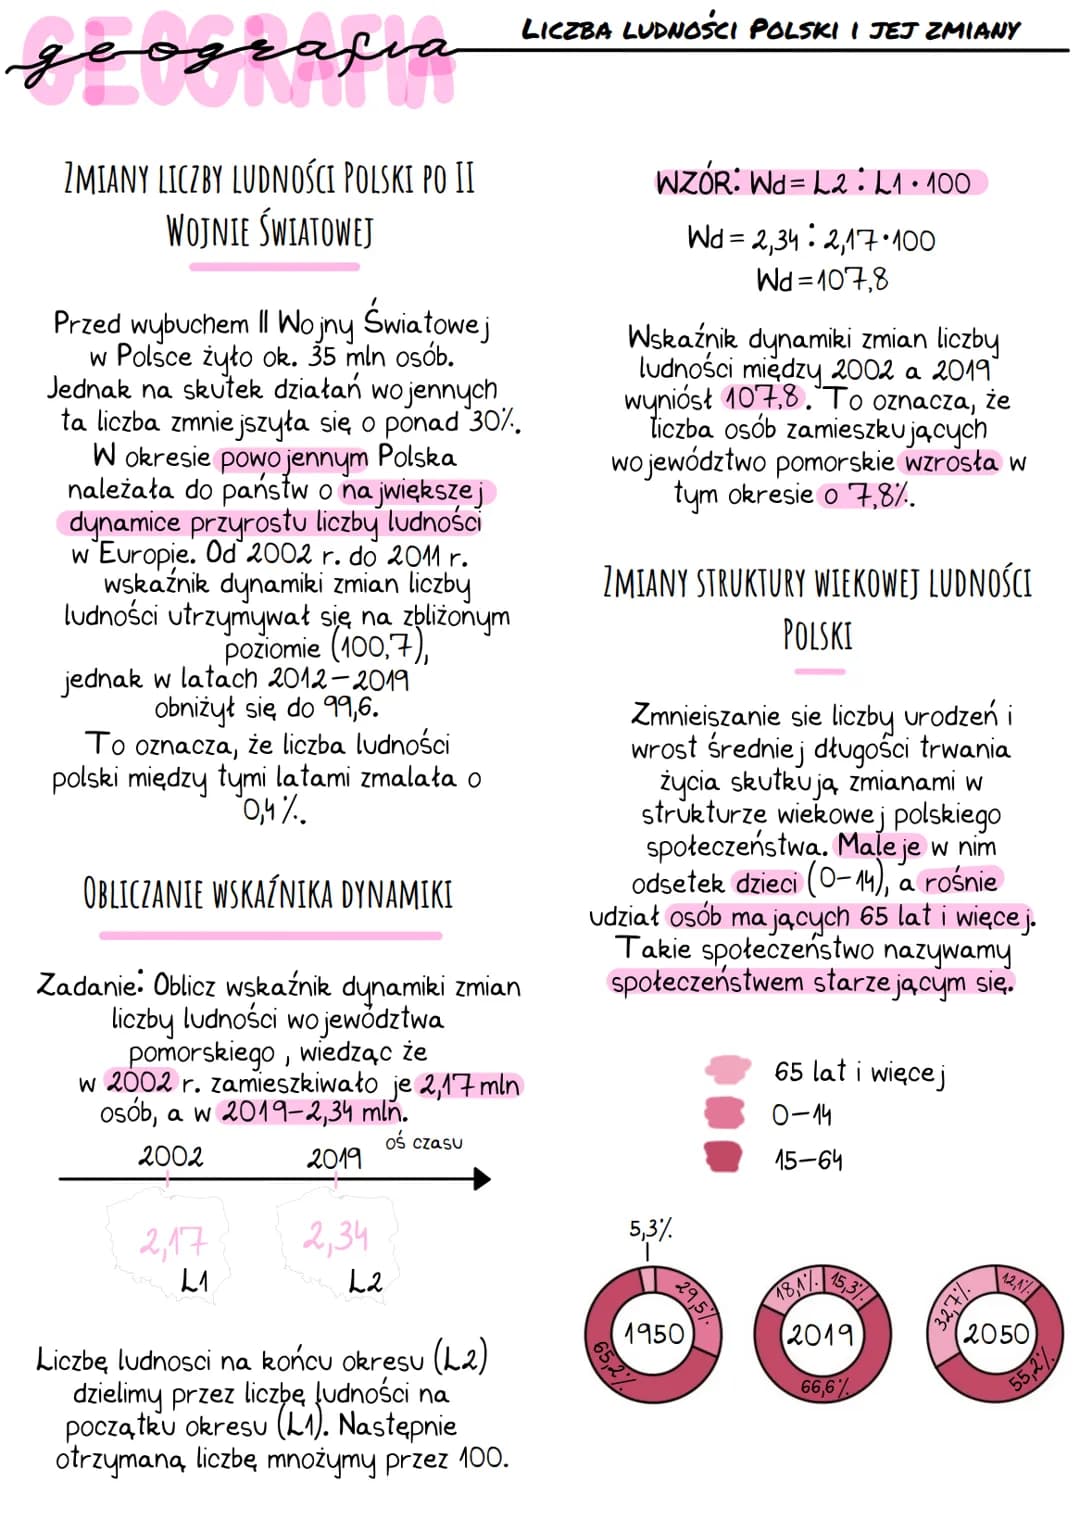 GEOGRAFIA
geografia
LICZBA LUDNOŚCI POLSKI I JEJ ZMIANY
ZMIANY LICZBY LUDNOŚCI POLSKI PO II
WOJNIE ŚWIATOWEJ
Przed wybuchem II Wojny Światowej
w Polsce żyło ok. 35 mln osób.
Jednak na skutek działań wojennych
ta liczba zmniejszyła się o ponad 30%.
W okresie powojennym Polska
należała do państw o największej
dynamice przyrostu liczby ludności
w Europie. Od 2002 r. do 2011 r.
wskaźnik dynamiki zmian liczby
ludności utrzymywał się na zbliżonym
poziomie (100,7),
jednak w latach 2012-2019
obniżył się do 99,6.
To oznacza, że liczba ludności
polski między tymi latami zmalała o
0,4%.
OBLICZANIE WSKAŹNIKA DYNAMIKI
Zadanie: Oblicz wskaźnik dynamiki zmian
liczby ludności województwa
pomorskiego, wiedząc że
w 2002 r. zamieszkiwało je 2,17 mln
osób, a w 2019-2,34 mln.
2002
2019
oś czasu
2,17
2,34
L1
L2
Liczbę ludnosci na końcu okresu (L2)
dzielimy przez liczbę ludności na
początku okresu (L1). Następnie
otrzymaną liczbę mnożymy przez 100.
WZÓR: Wd = L2 : L1 • 100
Wd = 2,34 : 2,17•100
Wd = 107,8
Wskaźnik dynamiki zmian liczby
ludności między 2002 a 2019
wyniósł 107,8. To oznacza, że
liczba osób zamieszkujących
województwo pomorskie wzrosła w
tym okresie o 7,8%.
ZMIANY STRUKTURY WIEKOWEJ LUDNOŚCI
POLSKI
Zmnieiszanie sie liczby urodzeń i
wrost średniej długości trwania
życia skutkują zmianami w
strukturze wiekowej polskiego
społeczeństwa. Maleje w nim
odsetek dzieci (0-14), a rośnie
udział osób mających 65 lat i więcej.
Takie społeczeństwo nazywamy
społeczeństwem starzejącym się.
65 lat i więcej
0-14
15-64
5,3%
29,5%
1950
65,2%
18,1%
15,3%
2019
66,6%
32,7%
12,1%
2050
55,2%